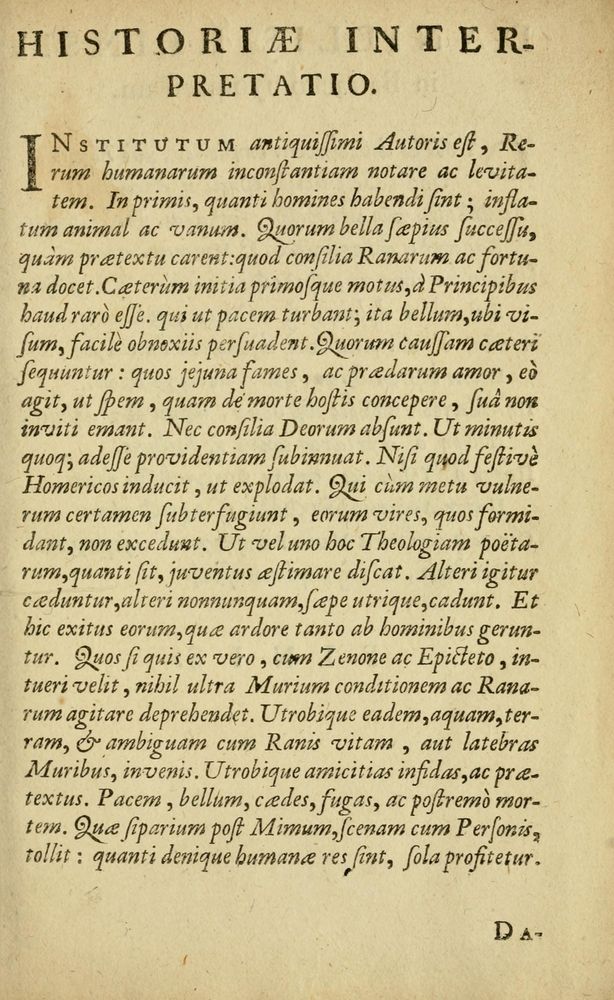 HISTORIÆ INTER-
PRETATIO.
INSTITUTUM antiquiſſimi Autoris eſt, Re-
rum humanarum inconſtantiam notare ac levita-
tem. In primis, quanti homines habendi ſint; infla-
tum animal ac vanum. Quorum bella ſæpius ſucceſſu,
quàm prætextu carent: quod conſilia Ranarum ac fortu-
na docet. Cæterùm initia primoſque motus, à Principibus
haud rarò eſſe. qui ut pacem turbant; ita bellum, ubi vi-
ſum, facilè obnoxiis perſuadent. Quorum cauſſam cæteri
ſequuntur: quos jejuna fames, ac prædarum amor, eò
agit, ut ſpem, quam de morte hoſtis concepere, ſuâ non
inviti emant. Nec conſilia Deorum abſunt. Ut minutis
quoq; adeſſe providentiam ſubinnuat. Niſi quod feſtivè
Homericos inducit, ut explodat. Qui cùm metu vulne-
rum certamen ſubterfugiunt, eorum vires, quos formi-
dant, non excedunt. Ut vel uno hoc Theologiam poëta-
rum, quanti ſit, juventus æſtimare diſcat. Alteri igitur
cæduntur, alteri nonnunquam, ſæpe utrique, cadunt. Et
hic exitus eorum, quæ ardore tanto ab hominibus gerun-
tur. Quos ſi quis ex vero, cum Zenone ac Epicteto, in-
tueri velit, nihil ultra Murium conditionem ac Rana-
rum agitare deprehendet. Utrobique eadem, aquam, ter-
ram, & ambiguam cum Ranis vitam, aut latebras
Muribus, invenis. Utrobique amicitias infidas, ac præ-
textus. Pacem, bellum, cædes, fugas, ac poſtremò mor-
tem. Quæ ſiparium poſt Mimum, ſcenam cum Perſonis,
tollit: quanti denique humanæ res ſint, ſola profitetur.
DA-